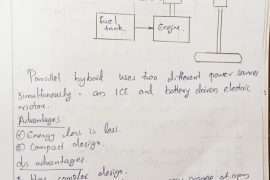 fuel
tank.
Engine.
Parallel hybrid uses two different power sources
simultaneously - an ICE and battery driven electric
motor.
Advantages
Energy loss is less.
Compact design.
dis advantages
Has complex design.